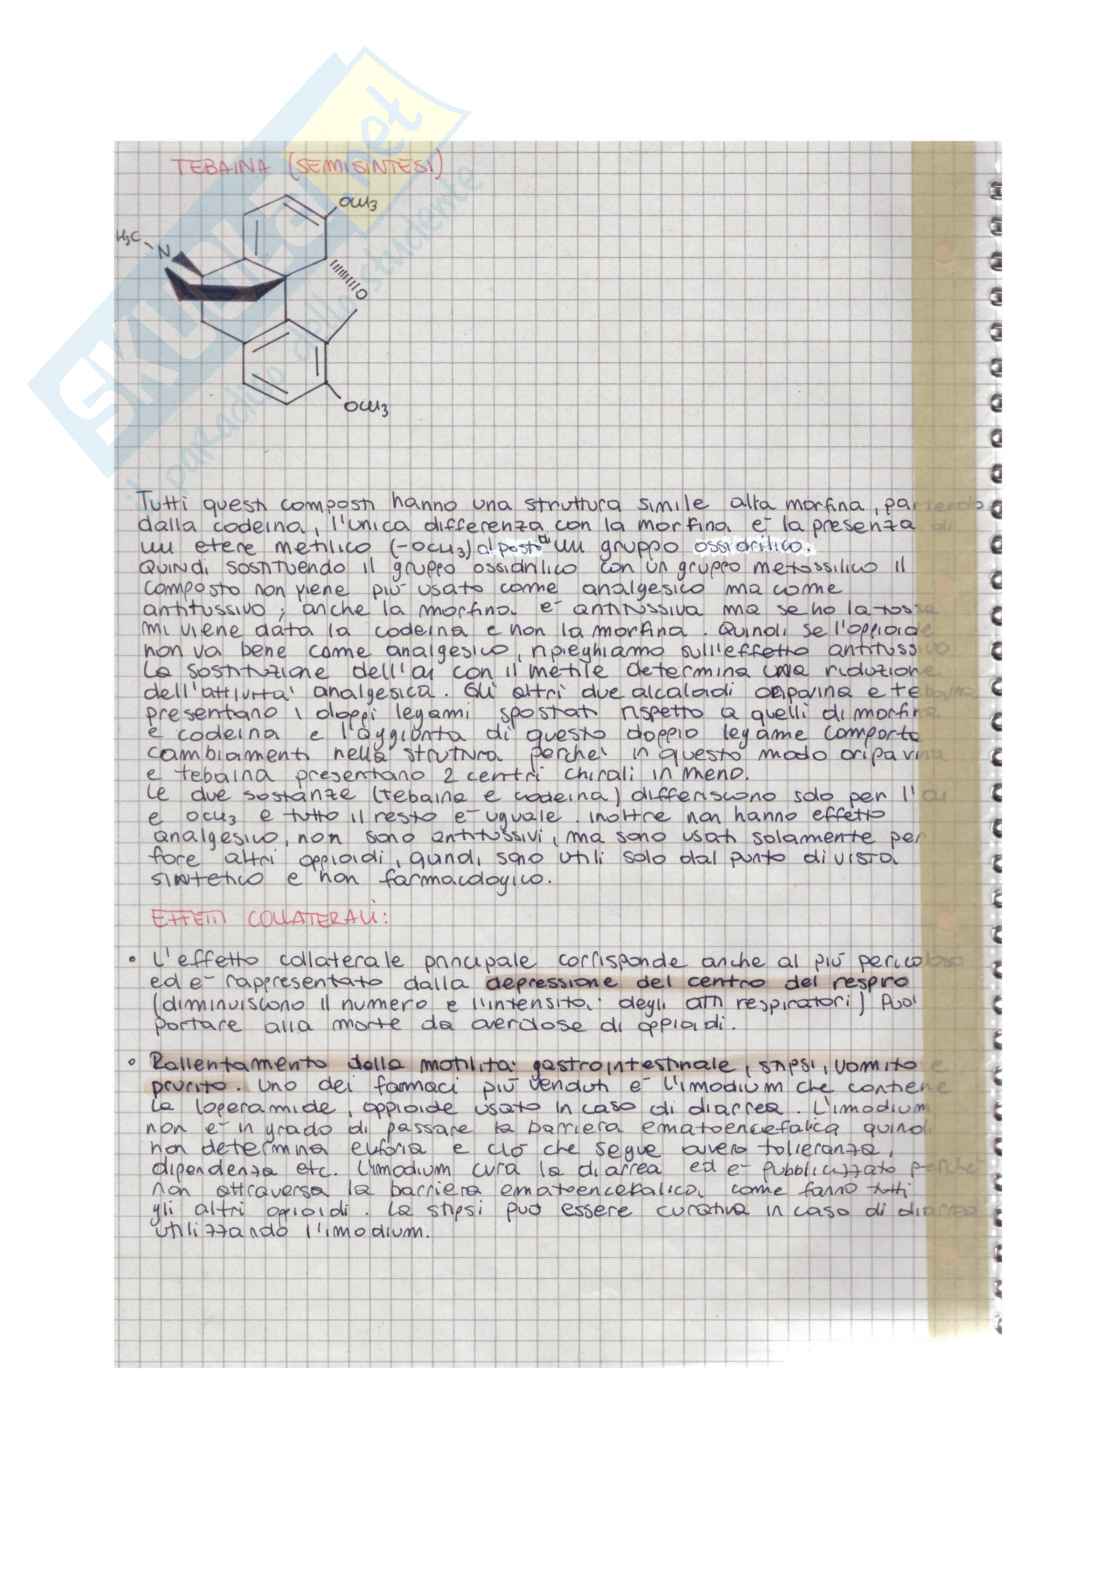 TEBAINA (SEMISINTESI)
OCH3
H3C
N
O
OCH3
Tutti questi composti hanno una struttura simile alla morfina, partendo
dalla codeina, l'unica differenza con la morfina è la presenza di
un etere metilico (-OCH3) al posto di un gruppo ossidrilico.
Quindi sostituendo il gruppo ossidrilico con un gruppo metossilico il
composto non viene più usato come analgesico ma come
antitussivo; anche la morfina è antitussiva ma se ho la tosse
mi viene data la codeina e non la morfina. Quindi se l'oppioide
non va bene come analgesico, ripieghiamo sull'effetto antitussivo
La sostituzione dell'OH con il metile determina una riduzione
dell'attività analgesica. Gli altri due alcaloidi oripavina e tebaina
presentano i doppi legami spostati rispetto a quelli di morfina
e codeina e l'aggiunta di questo doppio legame comporta
cambiamenti nella struttura perché in questo modo oripavina
e tebaina presentano 2 centri chirali in meno.
Le due sostanze (tebaina e codeina) differiscono solo per l'OH
e OCH3 e tutto il resto è uguale. Inoltre non hanno effetto
analgesico, non sono antitussivi, ma sono usati solamente per
fare altri oppioidi, quindi sono utili solo dal punto di vista
sintetico e non farmacologico.
EFFETTI COLLATERALI:
• L'effetto collaterale principale corrisponde anche al più pericoloso
ed è rappresentato dalla depressione del centro del respiro
(diminuiscono il numero e l'intensità degli atti respiratori) Può
portare alla morte da overdose di oppioidi.
• Rallentamento della motilità gastrointestinale, stipsi, vomito e
prurito. Uno dei farmaci più venduti è l'imodium che contiene
la loperamide, oppioide usato in caso di diarrea. L'imodium
non è in grado di passare la barriera ematoencefalica quindi
non determina euforia e ciò che segue ovvero tolleranza,
dipendenza etc. L'imodium cura la diarrea ed è pubblicizzato perché
non attraversa la barriera ematoencefalica come fanno tutti
gli altri oppioidi. La stipsi può essere curativa in caso di diarrea
utilizzando l'imodium.
SKUOLA.net
il paradiso dello studente